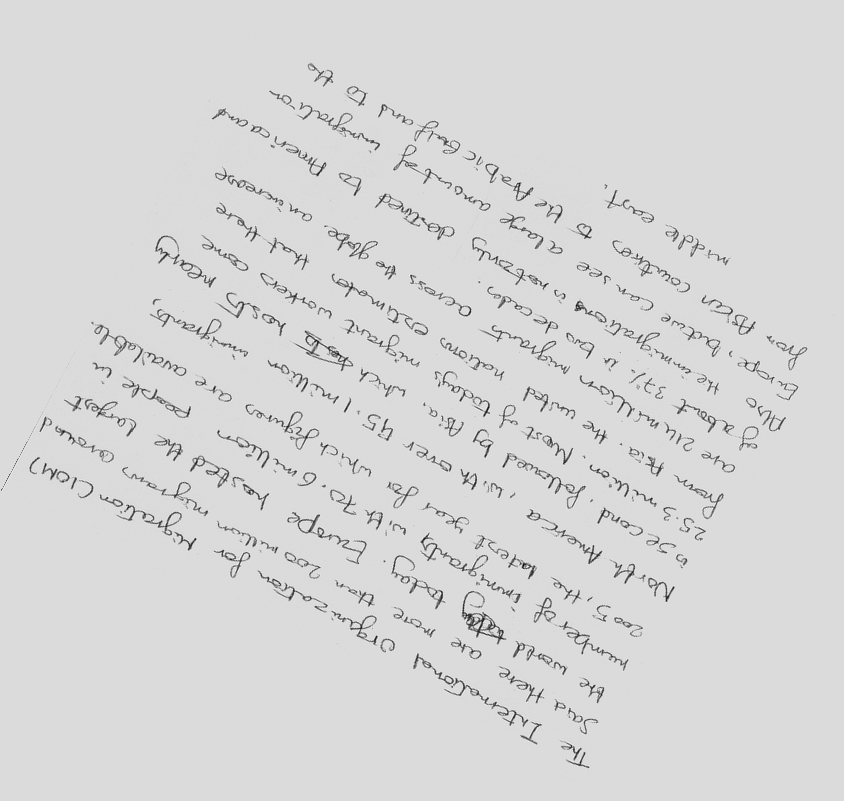 The International organization for Migration (IOM)
Said there are more than 200 million migrans around
the world today. Europe hosted the largest
number of immigrants with 70.6 million people in
2005, the latest year for which figures are available.
North America, with over 45.1 million immigrants,
is second, followed by Asia, which hosts nearly
25.3 million. Most of today's migrant workers come
from Asia. the united nations estimates that there
are 214 million migrants across the globe. an increase
of about 37% in two decades.
Also the immigrations is not only destined to America and
Europe, but we can see a large amount of immigration
from Asien countries to the Arabic Gulf and to the
middle east.